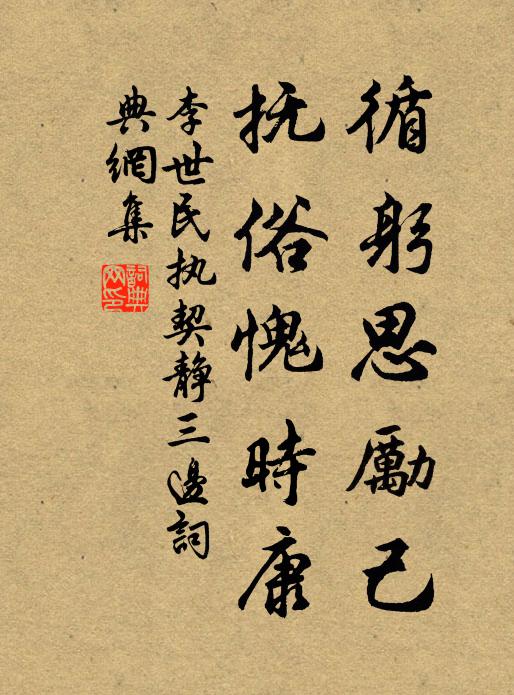 循躬思勵己
抚俗愧時康
李世民执契静三邊詞
典網集
詞典
网印